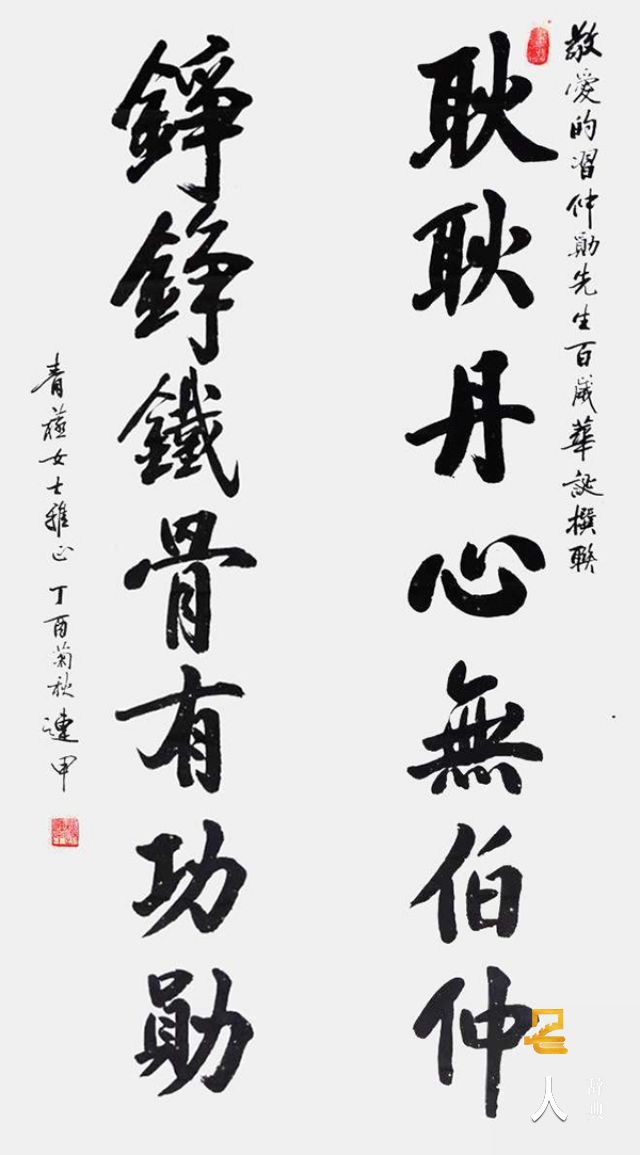 敬愛的習仲勛先生百歲華誕撰聯
耿耿丹心無伯仲
錚錚鐵骨有功勛
青蓮女士雅正丁酉菊秋連甲
名人
辞典